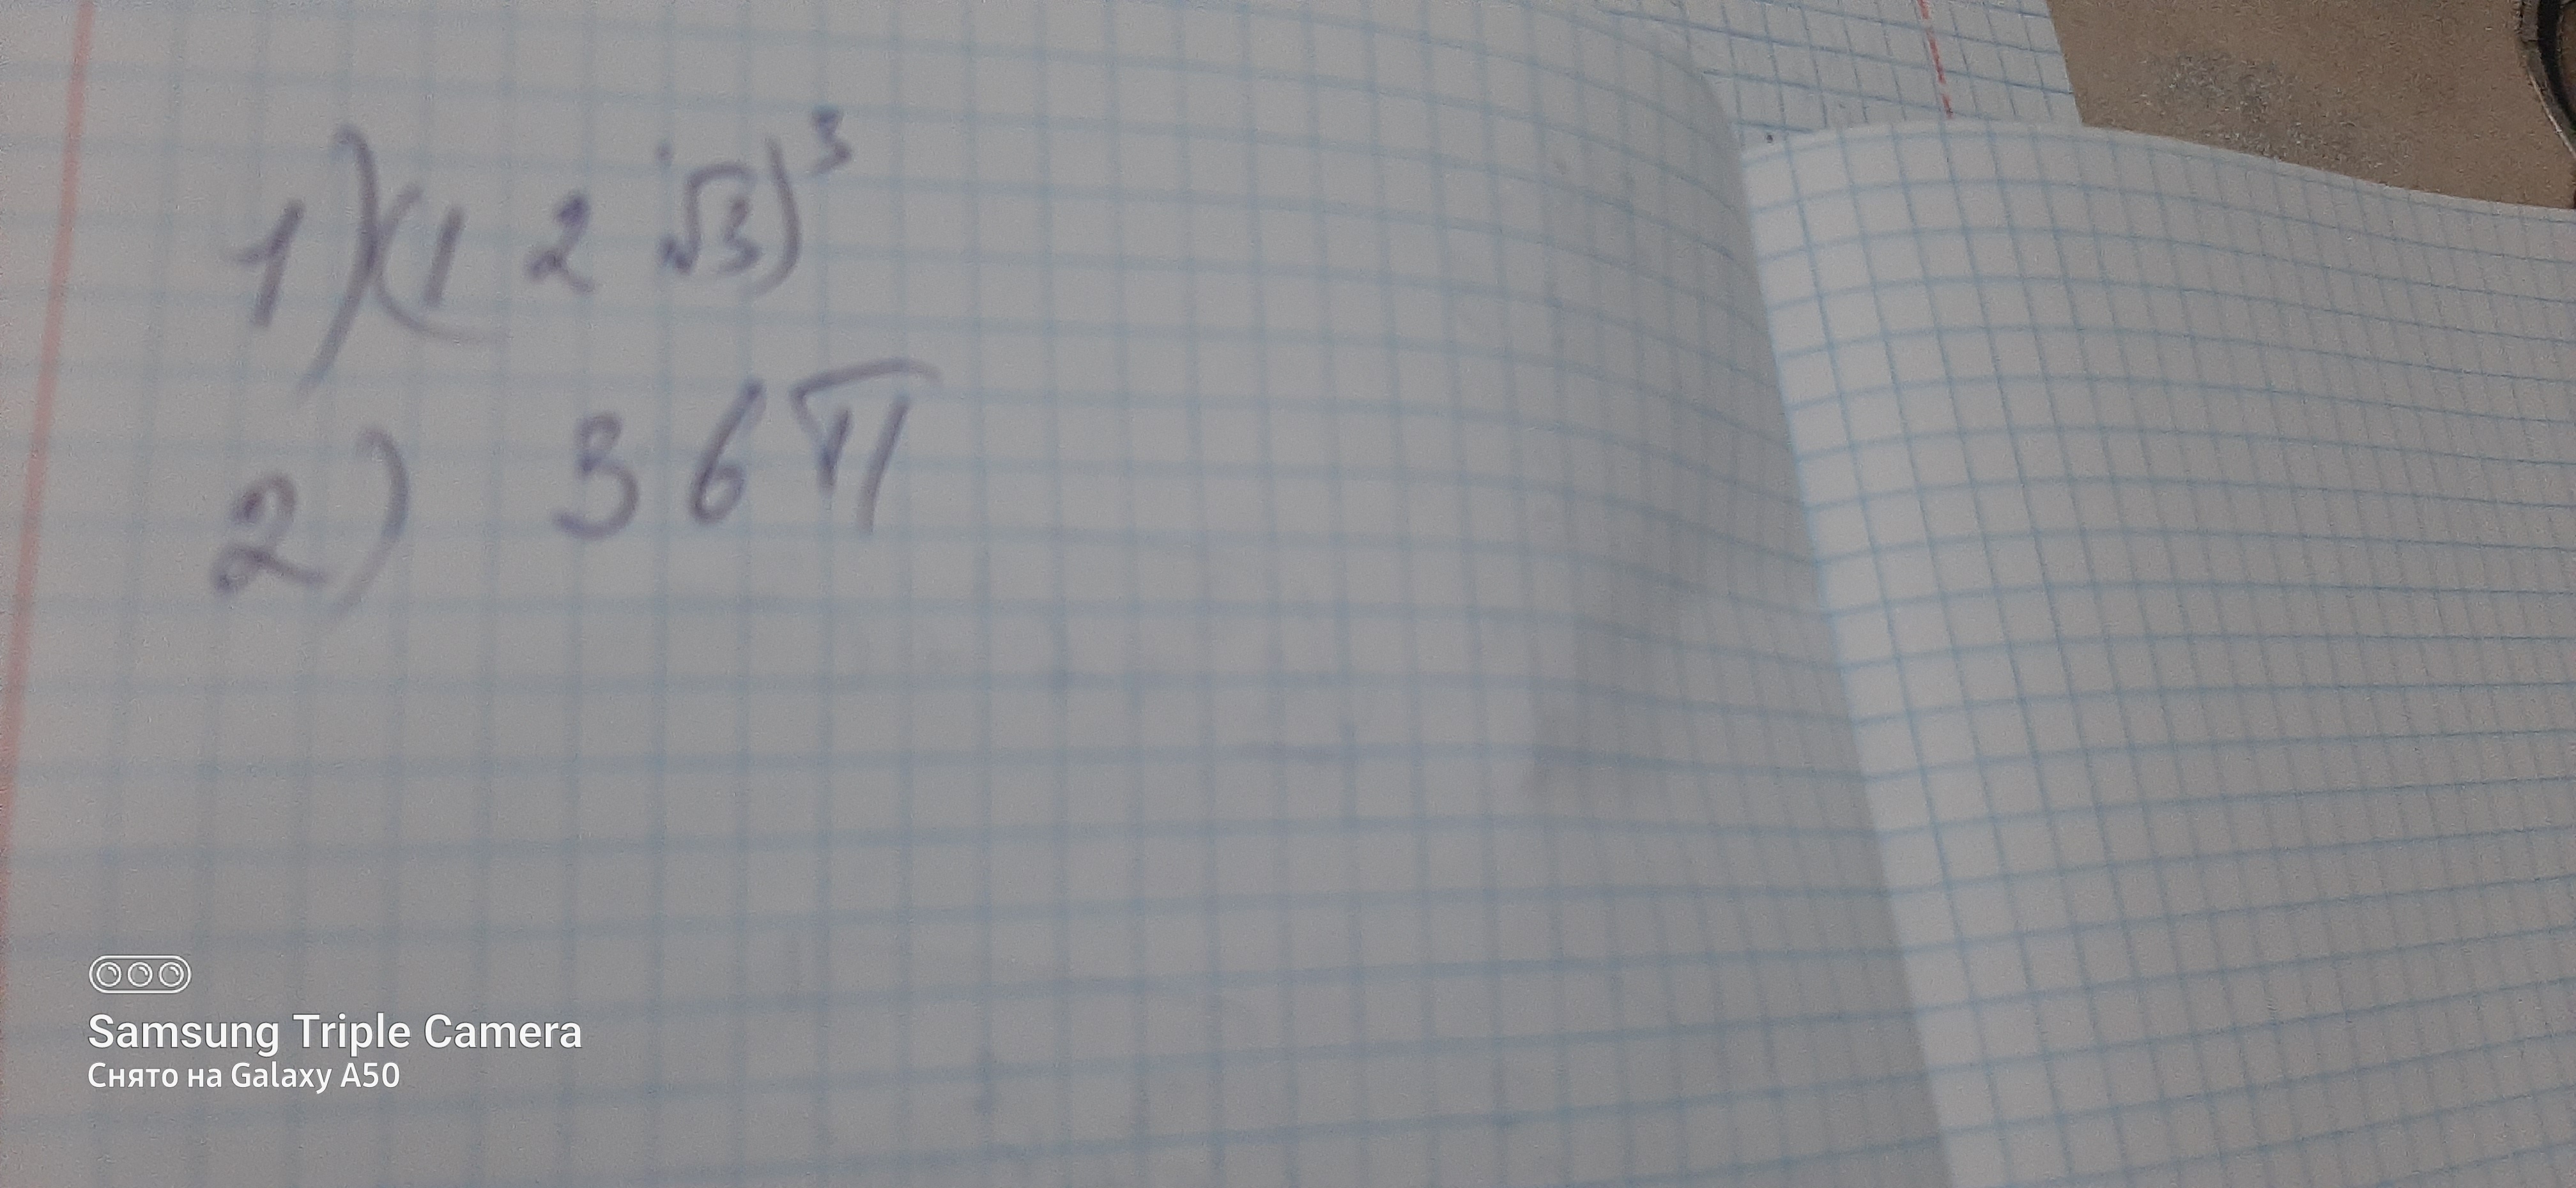 1) (1 2 √3)³
2) 36π
Samsung Triple Camera
Снято на Galaxy A50